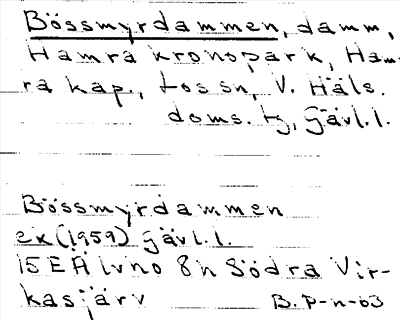 Bössmyrdammen, damm,
Hamra kronopark, Ham-
ra kap., Los sn, V. Häls.
doms. tg, Gävl. l.
Bössmyrdammen
ek (1959) Gävl. l.
15 E Älvho 8h Södra Vir-
kasjärv B. P-n-63